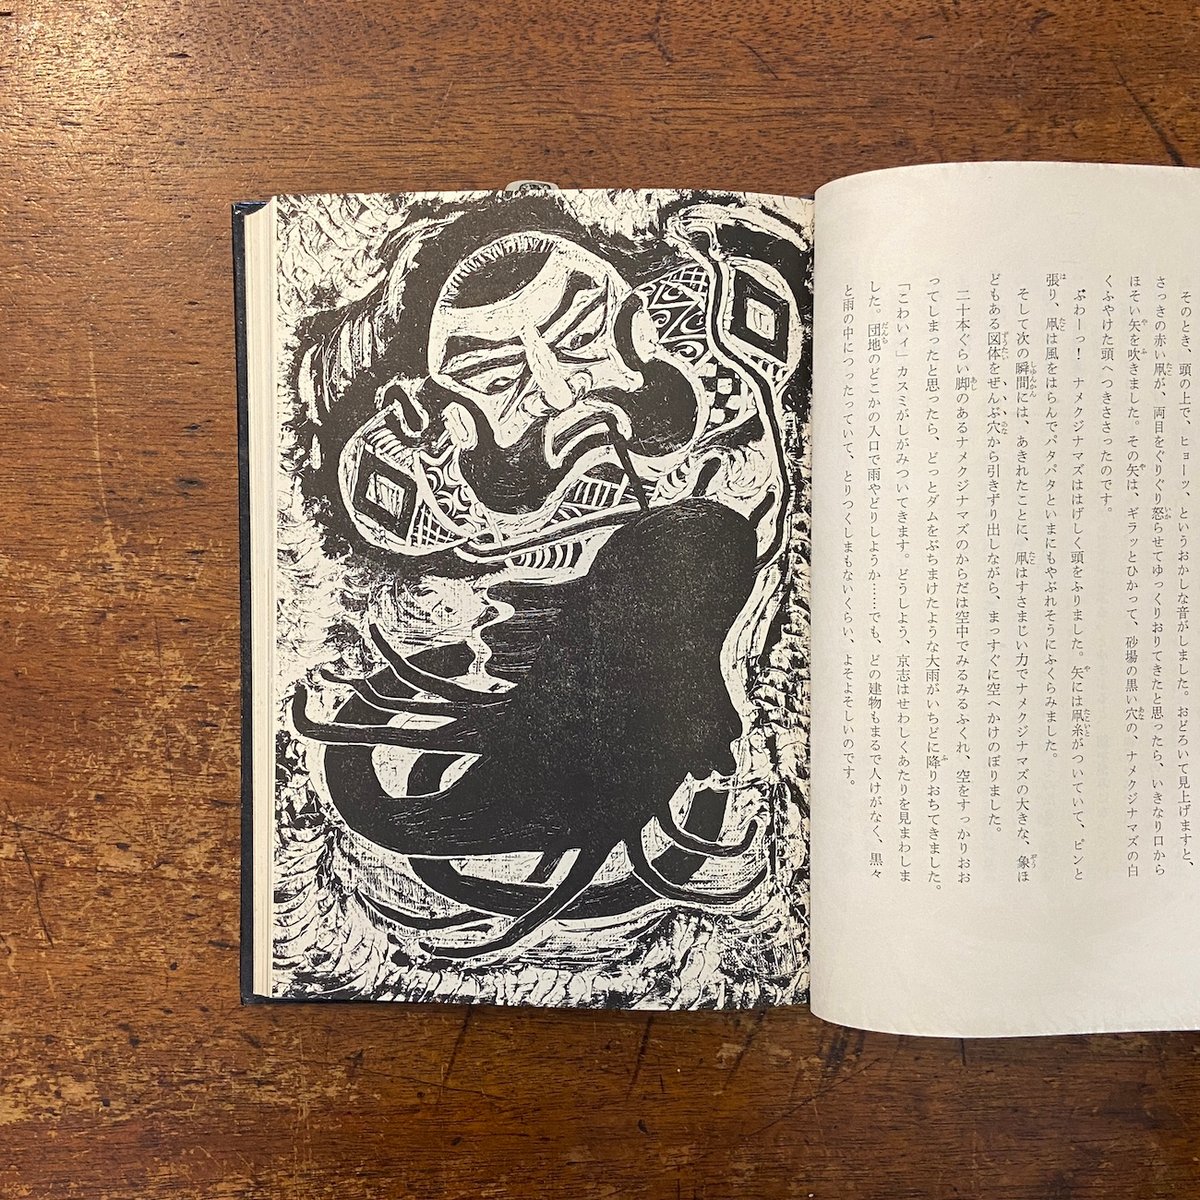 そのとき、頭の上で、ヒョーッ、というおかしな音がしました。おどろいて見上げますと、
さっきの赤い凧が、両目をぐりぐり怒らせてゆっくりおりてきたと思ったら、いきなり口から
ほそい矢を吹きました。その矢は、ギラッとひかって、砂場の黒い穴の、ナメクジナマズの白
くふやけた頭へつきささったのです。
ぶわーっ！　ナメクジナマズははげしく頭をふりました。矢には凧糸がついていて、ピンと
張り、凧は風をはらんでパタパタといまにもやぶれそうにふくらみました。
そして次の瞬間には、あきれたことに、凧はすさまじい力でナメクジナマズの大きな、象ほ
どもある図体をぜんぶ穴から引きずり出しながら、まっすぐに空へかけのぼりました。
二十本ぐらい脚のあるナメクジナマズのからだは空中でみるみるふくれ、空をすっかりおお
ってしまったと思ったら、どっとダムをぶちまけたような大雨がいちどに降りおちてきました。
「こわいィ」カスミがしがみついてきます。どうしよう、京志はせわしくあたりを見まわしま
した。団地のどこかの入口で雨やどりしようか……でも、どの建物もまるで人けがなく、黒々
と雨の中につったっていて、とりつくしまもないくらい、よそよそしいのです。